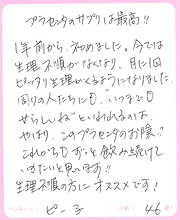 プラセンタのサプリは最高!!
1年前から、初めました。今では
生理不順がなくなり、月に1回
ピッタリ生理がくるようになりました。
周りの人たちにも、"いつまでも
せらしいね"といわれるのは、
やはり、このプラセンタのお陰"
これからもずっと飲み続けて
いきたいと思います!!
生理不順の方にオススメです!
ピー子 46歳